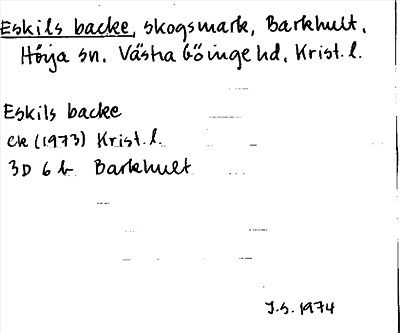 Eskils backe, skogsmark, Barkhult,
Hörja sn. Västra Göinge hd, Krist. l.
Eskils backe
ek (1973) Krist. l.
3D 6 b Barkhult
J.S. 1974